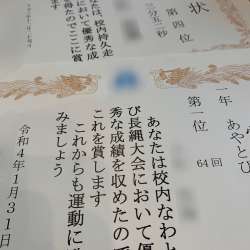 状
第四位
あなたは、校内持久走
において優秀な成
得たのでここに賞
ます
一年 あやとび
第一位 64回
あなたは校内なわと
び長縄大会において優
秀な成績を収めたので
これを賞します
これからも運動に
みましょう
令和4年1月31日